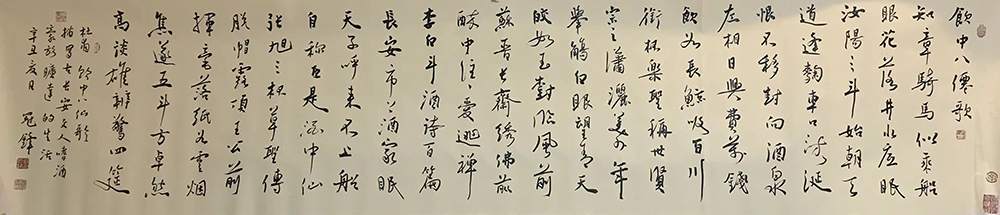 飲中八僊歌
知章騎馬似乘船
眼花落井水底眠
汝陽三斗始朝天
道逢麴車口流涎
恨不移封向酒泉
左相日興費萬錢
飲如長鯨吸百川
銜杯樂聖稱世賢
宗之瀟灑美少年
舉觴白眼望青天
皎如玉樹臨風前
蘇晉長齋綉佛前
醉中往往愛逃禪
李白斗酒詩百篇
長安市上酒家眠
天子呼來不上船
自稱臣是酒中仙
張旭三杯草聖傳
脫帽露頂王公前
揮毫落紙如雲煙
焦遂五斗方卓然
高談雄辯驚四筵
杜甫飲中八仙歌
描寫長安文人嗜酒
豪放曠達的生活
辛丑夏月